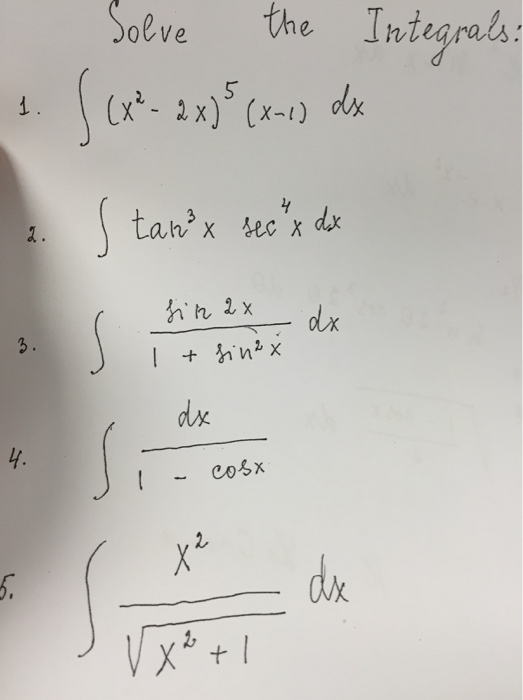 Solve the Integrals:
1. ∫ (x² - 2x)⁵ (x-1) dx
2. ∫ tan³x sec⁴x dx
3. ∫ sin 2x / (1 + sin²x) dx
4. ∫ dx / (1 - cosx)
5. ∫ x² / √(x² + 1) dx